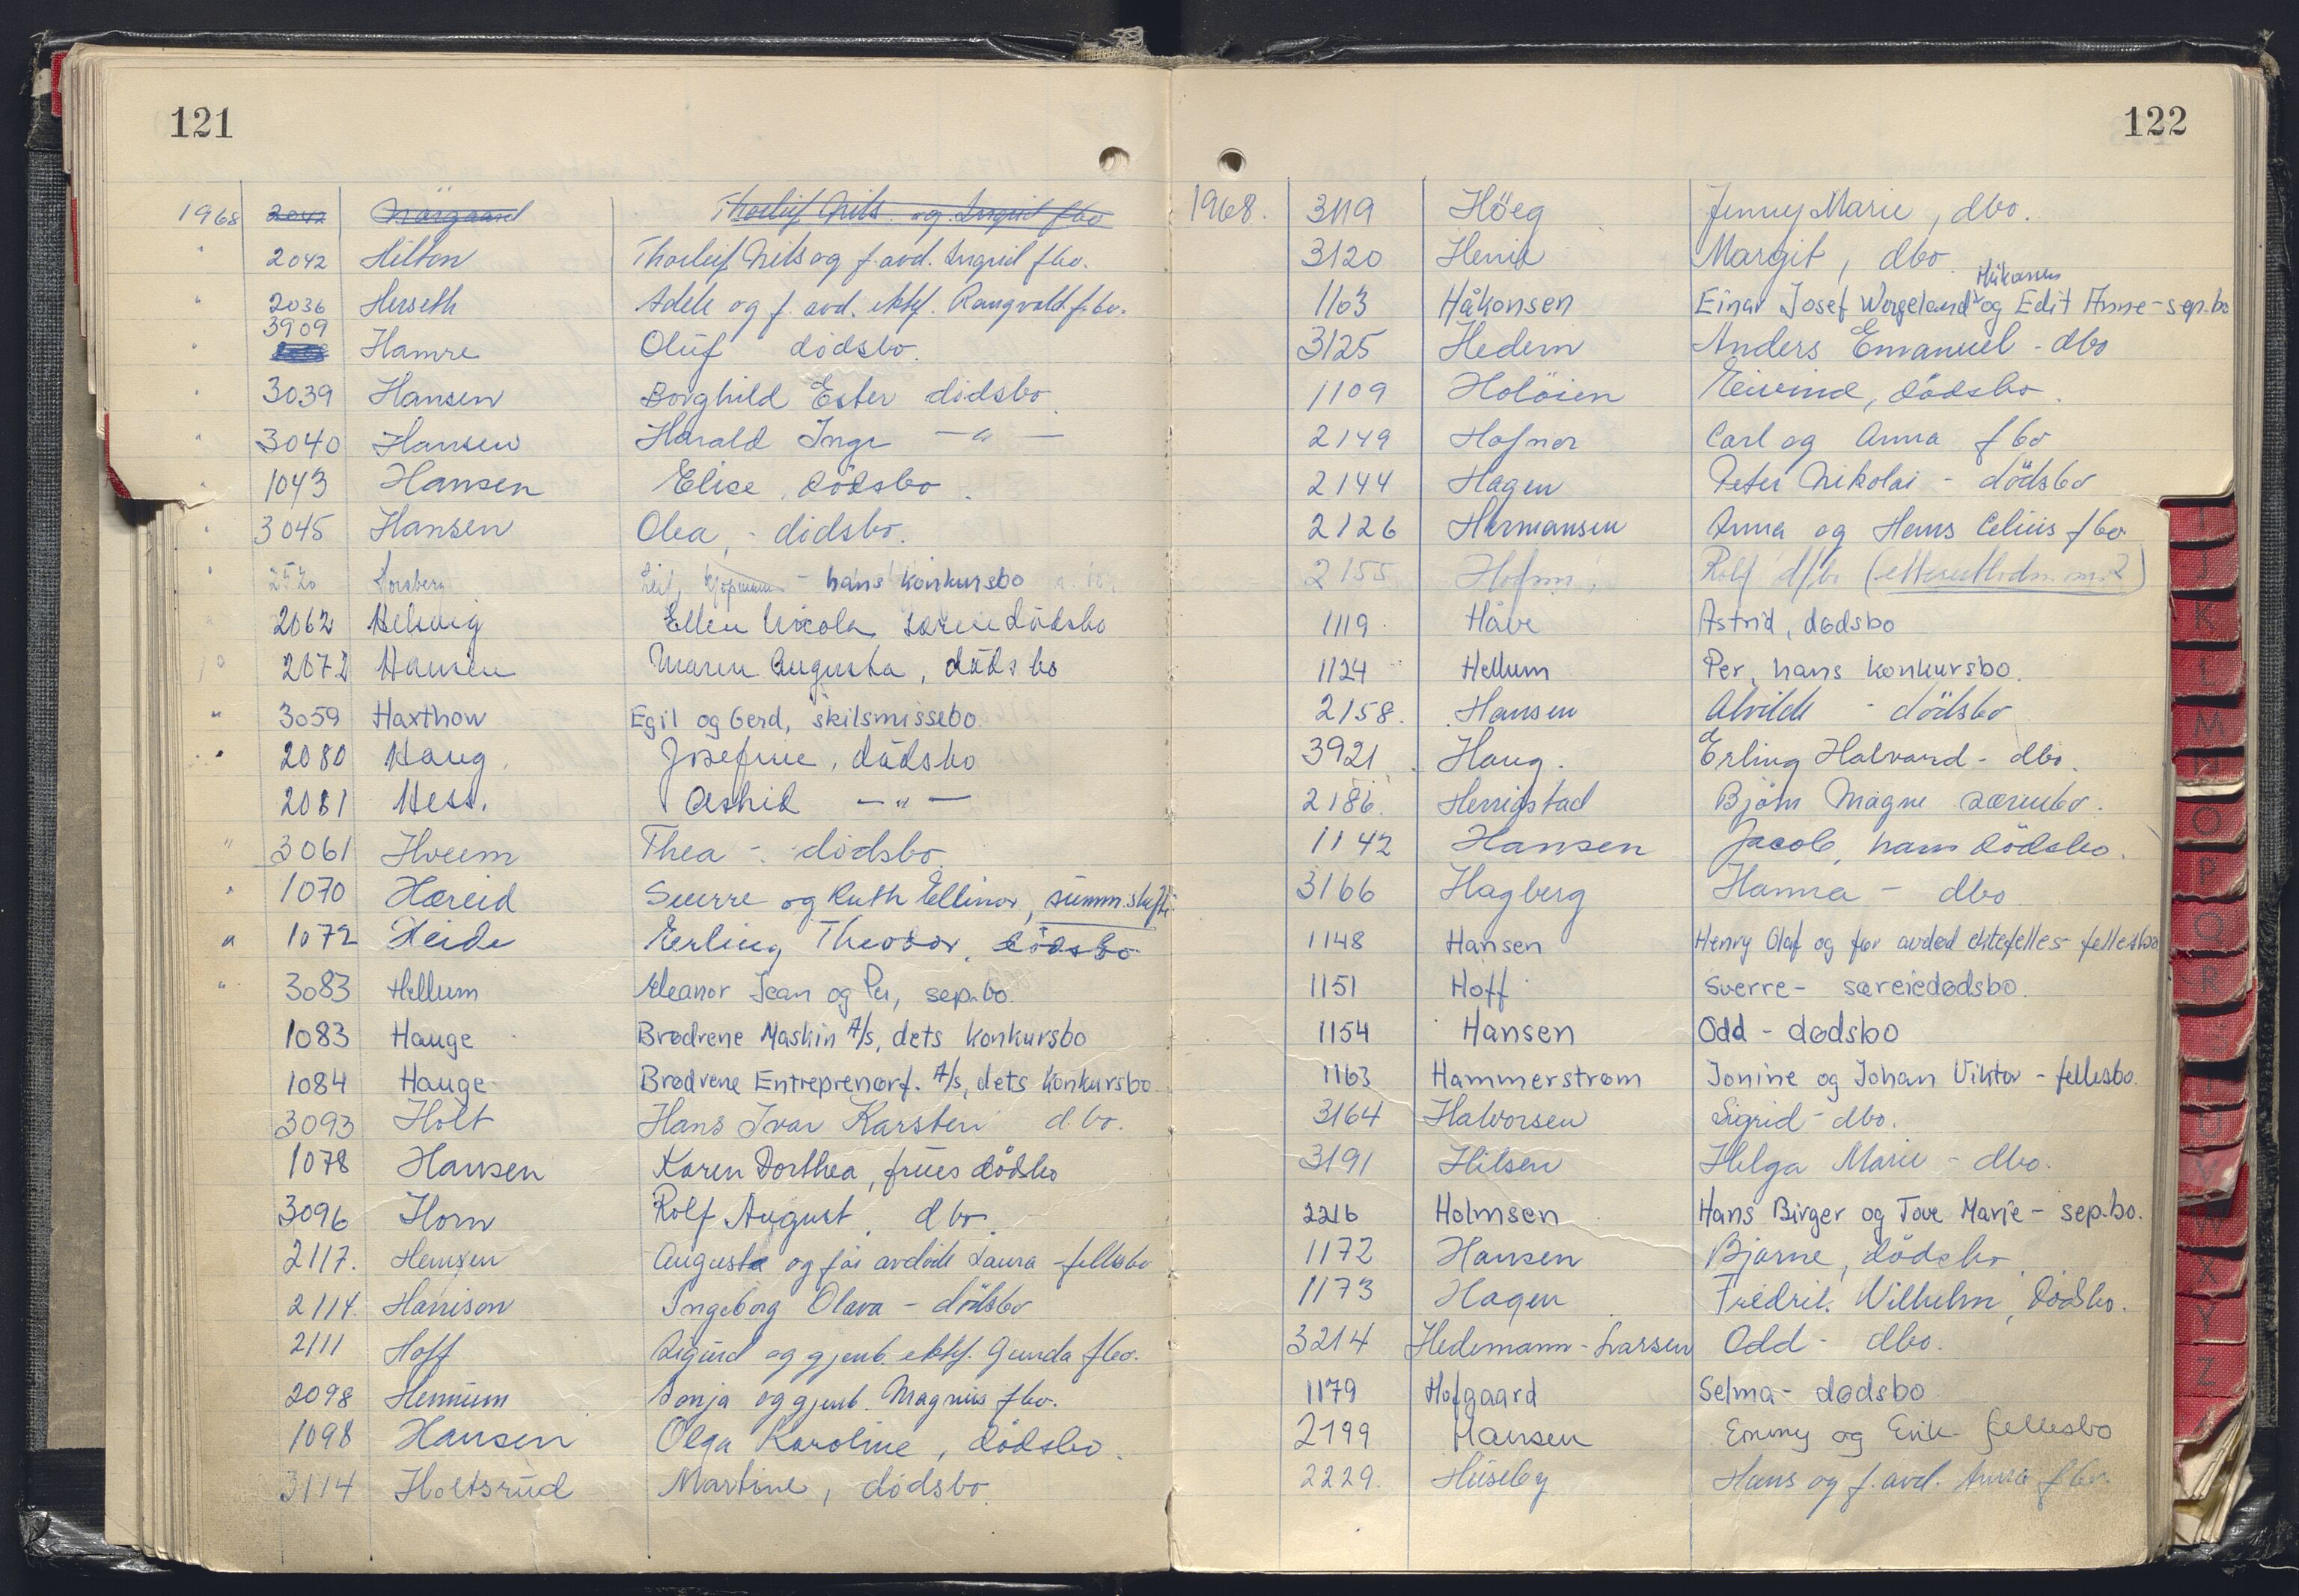 121
1968 2042 Nörgaard Thorleif Nils og Ingrid fbo
" 2042 Hilton Thorleif Nils og f. avd. Ingrid fbo.
" 2036 Herseth Adele og f. avd. ektef. Rangvald f.bo.
3909
" Hamre Oluf dödsbo.
" 3039 Hansen Borghild Ester dödsbo.
" 3040 Hansen Harald Inge — " —
" 1043 Hansen Elise, dödsbo.
" 3045 Hansen Olea, - dödsbo.
" Leif, - hans konkursbo
2062 Ellen Nicola særeiedödsbo
" 2072 Hansen Maren Augusta, dödsbo
" 3059 Haxthow Egil og Gerd, skilsmissebo.
" 2080 Haug. Josefine, dödsbo
2081 Hess. Astrid — " —
" 3061 Hveem Thea - dödsbo.
" 1070 Hæreid Sverre og Ruth Ellinor, summ.skifte.
" 1072 Heide Erling Theodor, dödsbo
" 3083 Hellum Eleanor Jean og Per, sep.bo.
1083 Hauge Brødrene Maskin A/s, dets konkursbo
1084 Hauge Brødrene Entreprenørf. A/s, dets konkursbo
3093 Holt Hans Ivar Karsten d.bo.
1078 Hansen Karen Dorthea, frues dödsbo
3096 Horn Rolf August, dbo.
2117. Hemsen Augusta og før avdöde Laura - fellesbo
2114. Harrison Ingeborg Olava - dödsbo
2111 Hoff Sigurd og gjenl. ektef. Gunda fbo.
2098 Hennum Sonja og gjenl. Magnus fbo.
1098 Hansen Olga Karoline, dödsbo.
3114 Holtsrud Martine, dödsbo.
122
1968. 3119 Höeg Jenny Marie, dbo.
3120 Henie Margit, dbo.
Håkansen
1103 Håkonsen Einar Josef Wergeland og Edit Anne - sep.bo
3125 Hedem Anders Emanuel - dbo
1109 Holöien Eivind, dödsbo.
2149 Hofnor Carl og Anna fbo
2144 Hagen Peter Nikolai - dödsbo
2126 Hermansen Anna og Hans Celius fbo
2155 Rolf
1119 Håve Astrid, dødsbo
1124 Hellum Per, hans konkursbo.
2158. Hansen Alvilde - dödsbo
3921 Haug. Erling Halvard - dbo.
2186. Hennigstad Björn Magne særeiebo.
1142 Hansen Jacob, hans dödsbo.
3166 Hagberg Hanna - dbo
1148 Hansen Henry Olaf og før avdød ektefelles fellesbo
1151 Hoff Sverre - særeiedødsbo.
1154 Hansen Odd - dødsbo
1163 Hammerstrøm Jonine og Johan Viktor - fellesbo.
3164 Halvorsen Sigrid - dbo.
3191 Hilsen Helga Marie - dbo.
2216 Holmsen Hans Birger og Tove Marie - sep.bo.
1172 Hansen Bjarne, dödsbo
1173 Hagen Fredrik Wilhelm, dödsbo.
3214 Hedemann-Larsen Odd - dbo.
1179 Hofgaard Selma - dødsbo
2199 Hansen Emmy og Erik fellesbo
2229. Huseby Hans og f. avd. Anna fbo.
I
J
K
L
M
N
O
P
Q
R
S
T
U
V
W
X
Y
Z